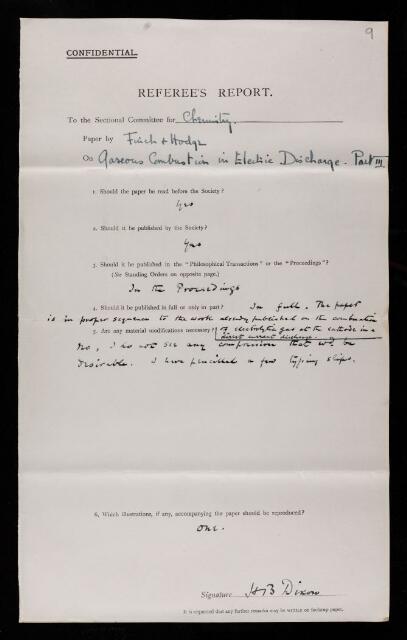 9
CONFIDENTIAL.
REFEREE'S REPORT.
To the Sectional Committee for Chemistry.
Paper by Finch & Hodge
On Gaseous Combustion in Electric Discharge. Part III
1. Should the paper be read before the Society?
Yes
2. Should it be published by the Society?
Yes
3. Should it be published in the "Philosophical Transactions" or the "Proceedings"?
(See Standing Orders on opposite page.)
In the Proceedings
4. Should it be published in full or only in part? In full. The paper
is in proper sequence to the work already published on the combustion
of electrolytic gas at the cathode in a
direct current discharge.
5. Are any material modifications necessary?
No, I do not see any compression that wd. be
desirable. I have pencilled a few typing slips.
6. Which illustrations, if any, accompanying the paper should be reproduced?
One.
Signature H B Dixon
It is requested that any further remarks may be written on foolscap paper.